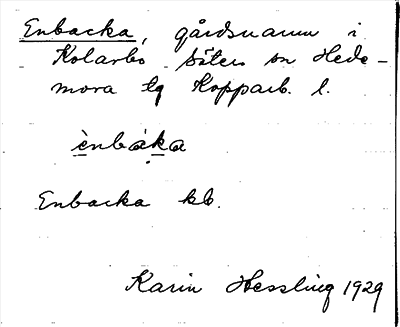 Enbacka, gårdsnamn i
Kolarbo Säters sn Hede-
mora tg Kopparb. l.
ènbáka
Enbacka kb.
Karin Hessling 1929